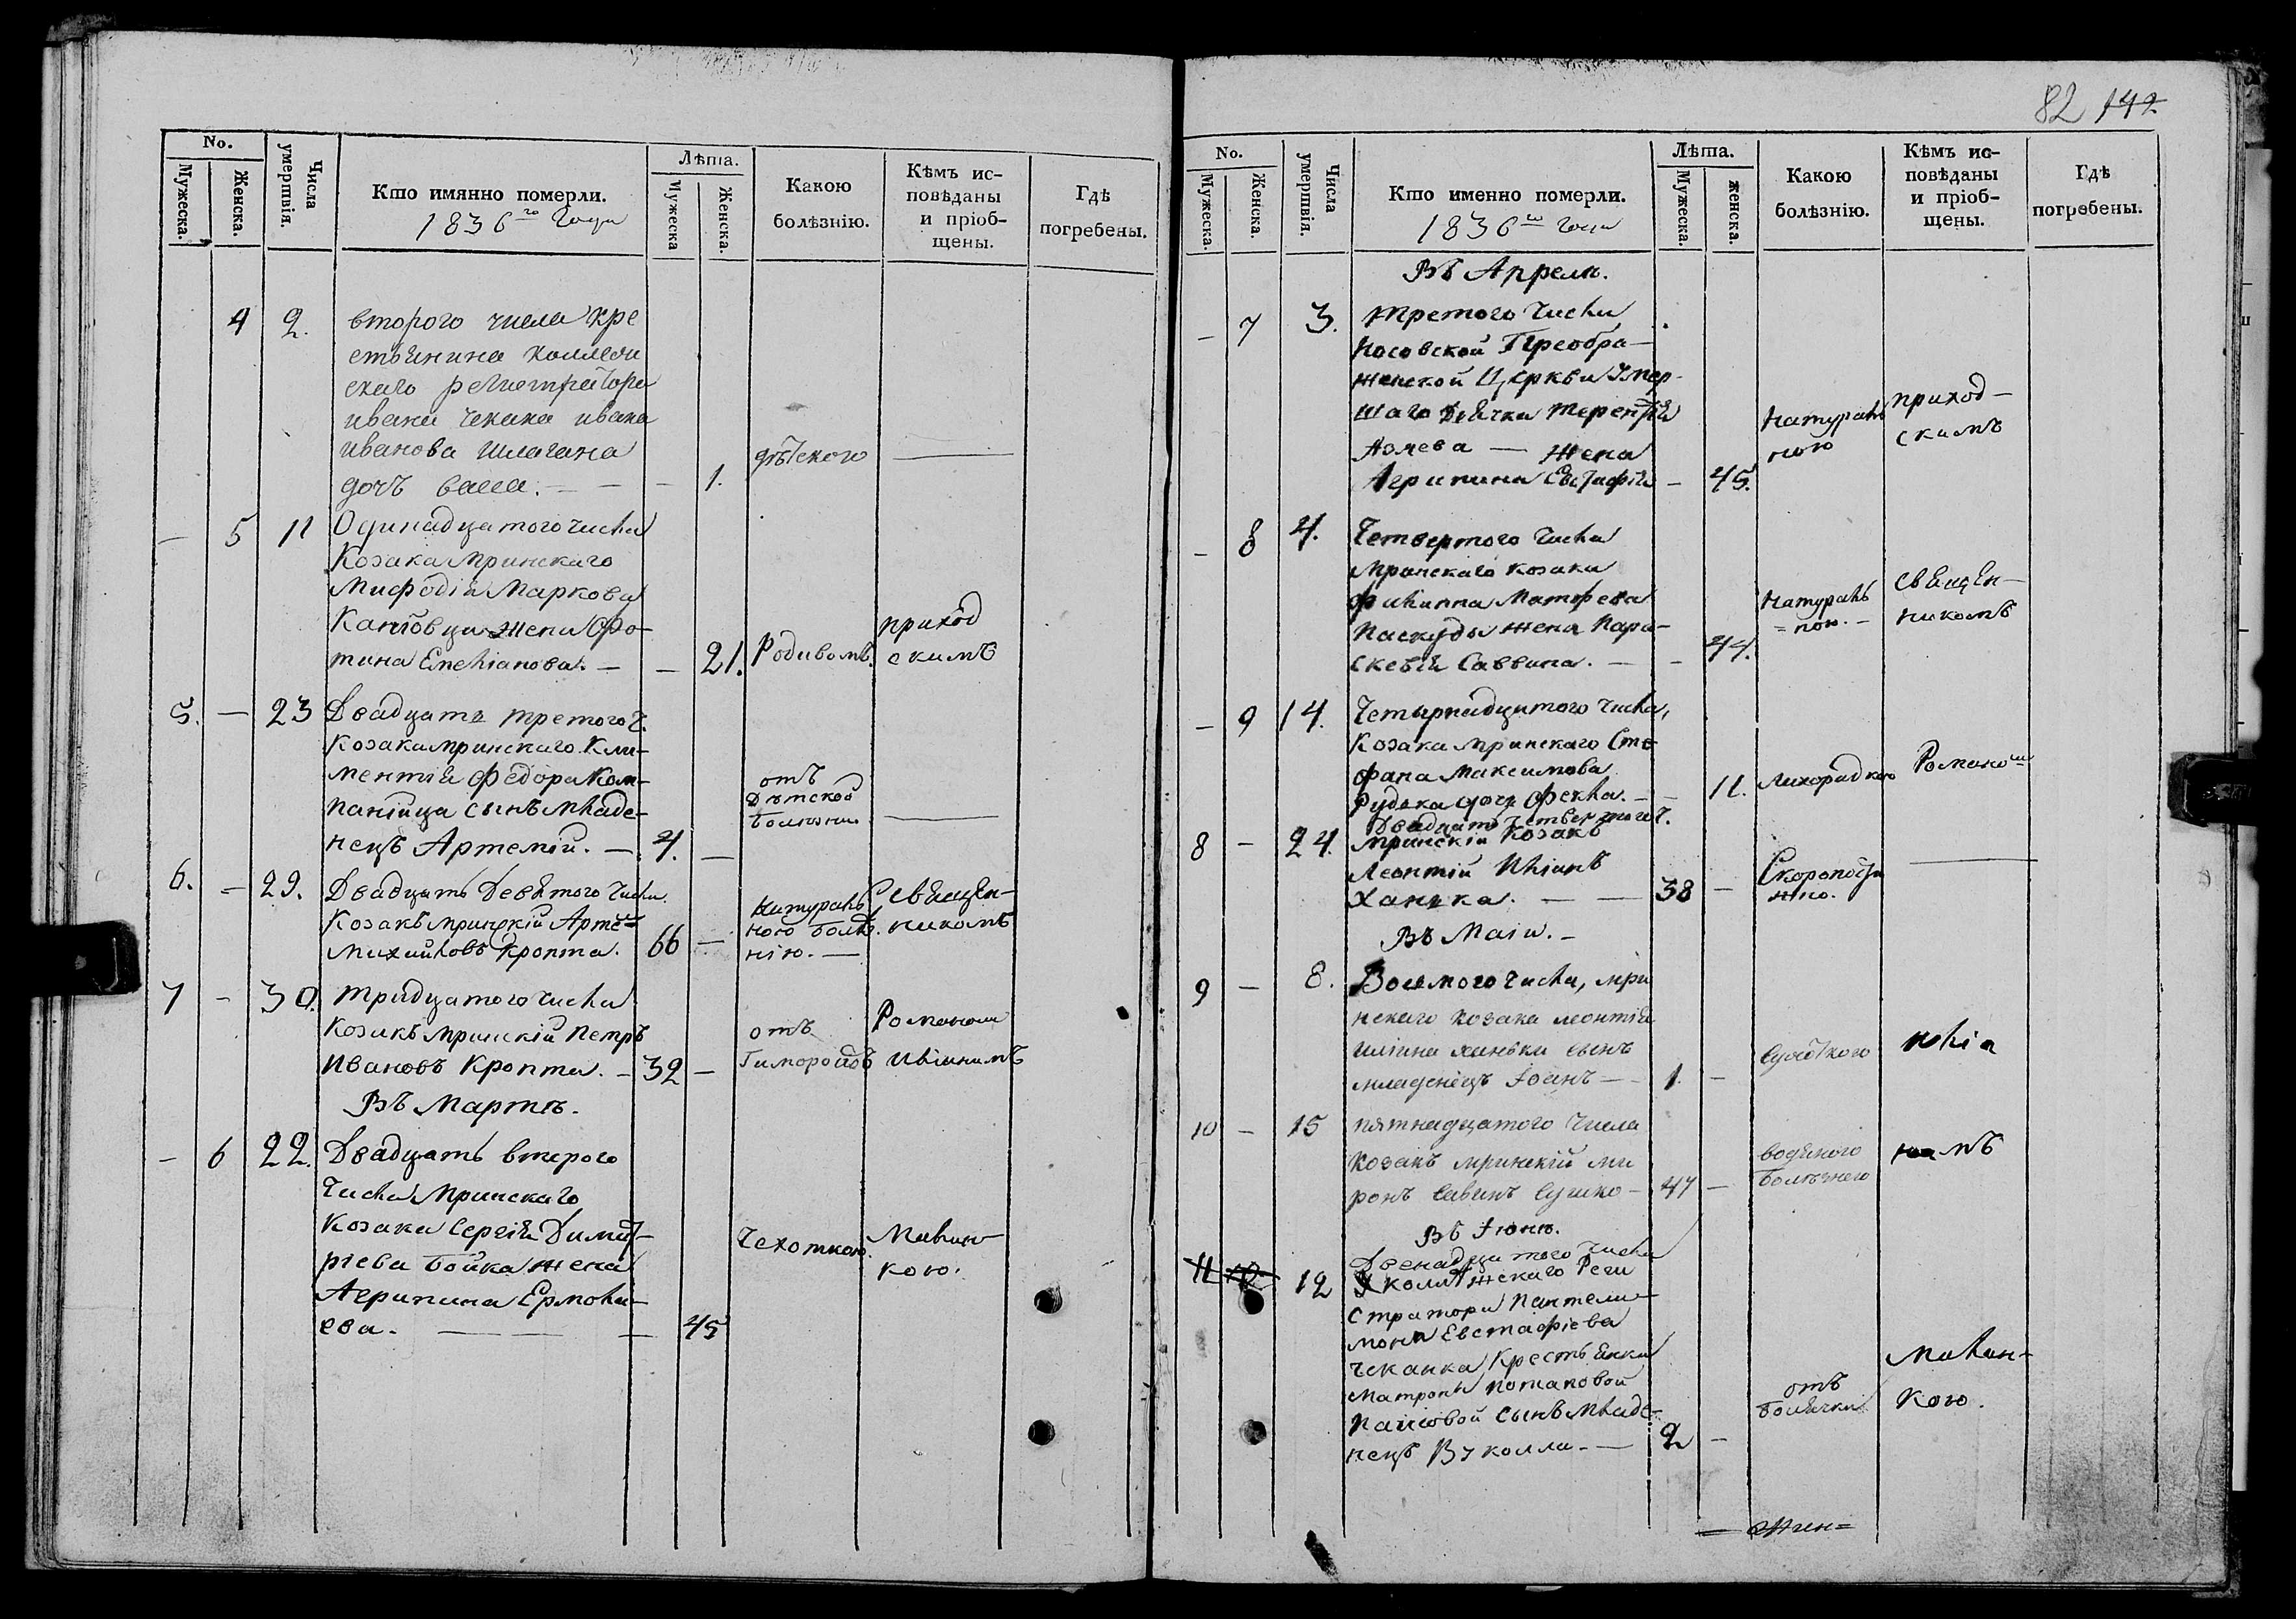 82 142
No.
Мужеска.
Женска.
Числа умертвія.
Кто имянно померли.
1836го года
Лѣта.
Мужеска
Женска.
Какою болѣзнію.
Кѣмъ исповѣданы и пріобщены.
Гдѣ погребены.
4 2. второго числа кре
стьянина коллежи
скаго регистратора
ивана чекана ивана
иванова
дочь васса. — — — 1. дѣтскою —
— 5 11 Одинадцатого числа
Козака мринскаго
Мифодія Маркова
жена Фо-
тина Емеліанова. — — 21. Родивомъ. приход
скимъ
5. — 23 Двадцать третого ч.
Козака мринскаго Кли-
ментія Федора Ком-
панійца сынъ младе-
нецъ Артемій. — 4. — отъ
Дѣтской
болѣзни —
6. — 29. Двадцать Девятого числа
Козакъ мринскій Артем
Михайловъ Кропта. 66 — натураль
ною болѣз.
нію. — Священ-
никомъ
7 — 30. Тридцатого числа
Козакъ мринскій Петръ
Ивановъ Кропта. — 32 — отъ
Гимороидъ Романом
Ивіинимъ
Въ Мартѣ.
— 6 22. Двадцать второго
Числа Мринскаго
Козака Сергія Димит-
ріева Бойка жена
Агрипина Ермола-
ева. — — — — 45 Чехоткою. Малин-
кою.
No.
Мужеска.
Женска.
Числа умертвія.
Кто именно померли.
1836го года
Лѣта.
Мужеска.
женска.
Какою болѣзнію.
Кѣмъ исповѣданы и пріобщены.
Гдѣ погребены.
Въ Апрели.
— 7 3. Третого числа
Носовской Преобра-
женской Церкви Умер-
шаго Дячка Терентія
— жена
Агрипина Евстафіева — 45. Натураль
ною приход-
скимъ
— 8 4. Четвертого числа
Мринскаго козака
Филиппа Матфеева
Паскуды жена Пара-
скевія Саввина. — — 44. Натураль
= ною. — священ-
никомъ
— 9 14. Четырнадцятого числа,
Козака мринскаго Сте
фана Максимова
Рудька дочь Фекла. — — 11. Лихорадкою Романом
8 — 24. Двадцать четвертого ч.
мринскій Козакъ
Леонтій Иліинъ
Ханька. — — 38 — Скоропости
жно. —
Въ Маіи. —
9 — 8. Восмого числа, мри
нскаго козака леонтія
иліина ханьки сынъ
младенецъ Іоанъ — — 1. — Илія
10 — 15 пятнадцатого числа
козакъ мринскій ми
ронъ Савинъ — 47 — водяного
болѣзнею намъ
Въ Іюнѣ.
11 12 Двенадцатого числа
колежскаго Реги
стратора Пантели-
мона Евстафіева
чеканка Крестьянки
Матроны Потаповой
сынъ младе-
нецъ Вукколл. — 2 — отъ
болячки Малин-
кою.